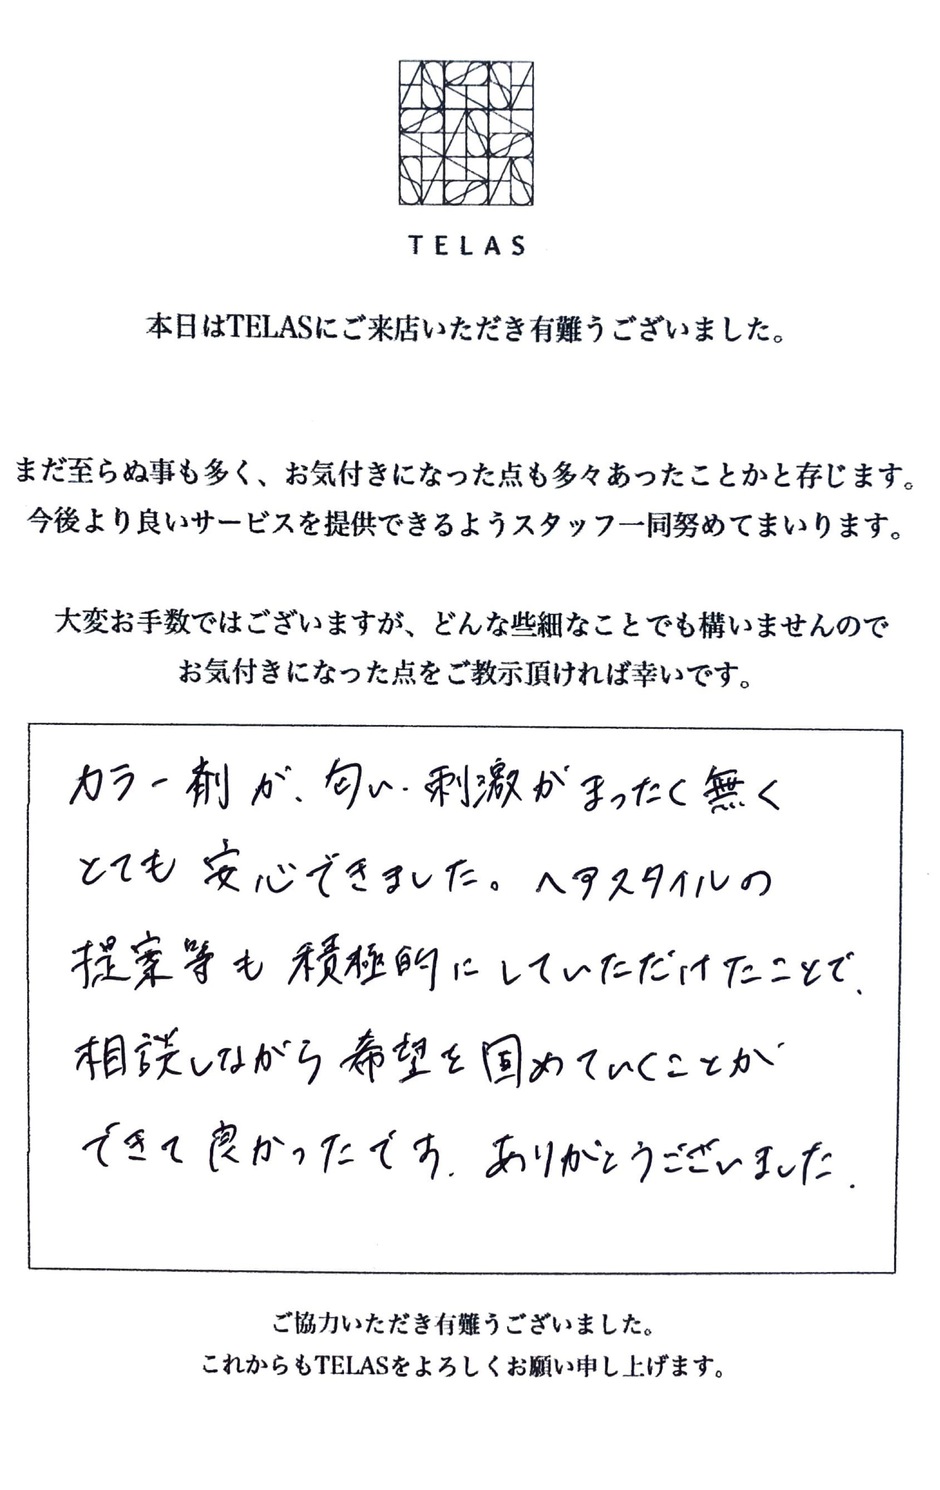 TELAS
本日はTELASにご来店いただき有難うございました。
まだ至らぬ事も多く、お気付きになった点も多々あったことかと存じます。
今後より良いサービスを提供できるようスタッフ一同努めてまいります。
大変お手数ではございますが、どんな些細なことでも構いませんので
お気付きになった点をご教示頂ければ幸いです。
カラー剤が、匂い・刺激がまったく無く
とても安心できました。ヘアスタイルの
提案等も積極的にしていただけたことで、
相談しながら希望を固めていくことが
できて良かったです。ありがとうございました。
ご協力いただき有難うございました。
これからもTELASをよろしくお願い申し上げます。